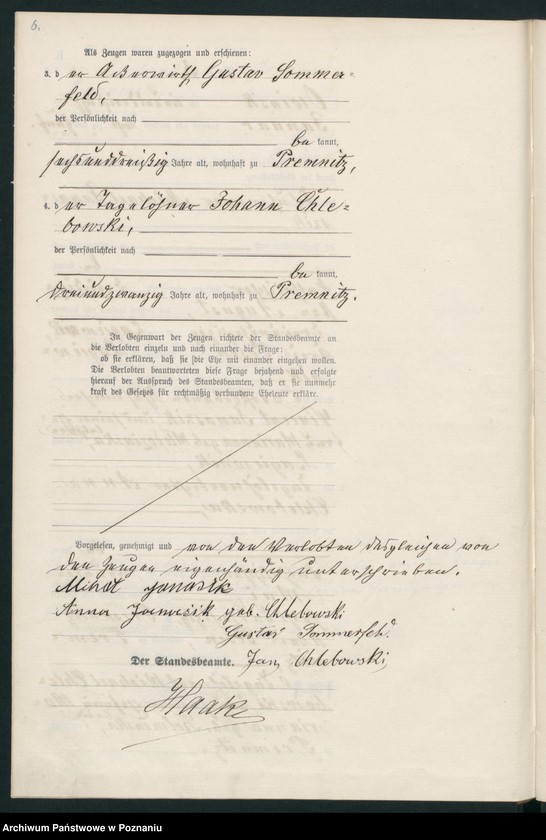 6.
Als Zeugen waren zugezogen und erschienen:
3. der Ackerwirth Gustav Sommer=
feld,
der Persönlichkeit nach
be kannt,
sechsunddreißig Jahre alt, wohnhaft zu Premnitz,
4. der Tagelöhner Johann Chle=
bowski,
der Persönlichkeit nach
be kannt,
dreiundzwanzig Jahre alt, wohnhaft zu Premnitz.
In Gegenwart der Zeugen richtete der Standesbeamte an
die Verlobten einzeln und nach einander die Frage:
ob sie erklären, daß sie die Ehe mit einander eingehen wollen.
Die Verlobten beantworteten diese Frage bejahend und erfolgte
hierauf der Ausspruch des Standesbeamten, daß er sie nunmehr
kraft des Gesetzes für rechtmäßig verbundene Eheleute erkläre.
Vorgelesen, genehmigt und von den Verlobten desgleichen von
den Zeugen eigenhändig unterschrieben.
Mihał Janasik
Anna geb. Chlebowski
Gustav
Der Standesbeamte. Jan Chlebowski
Haak
Archiwum Państwowe w Poznaniu